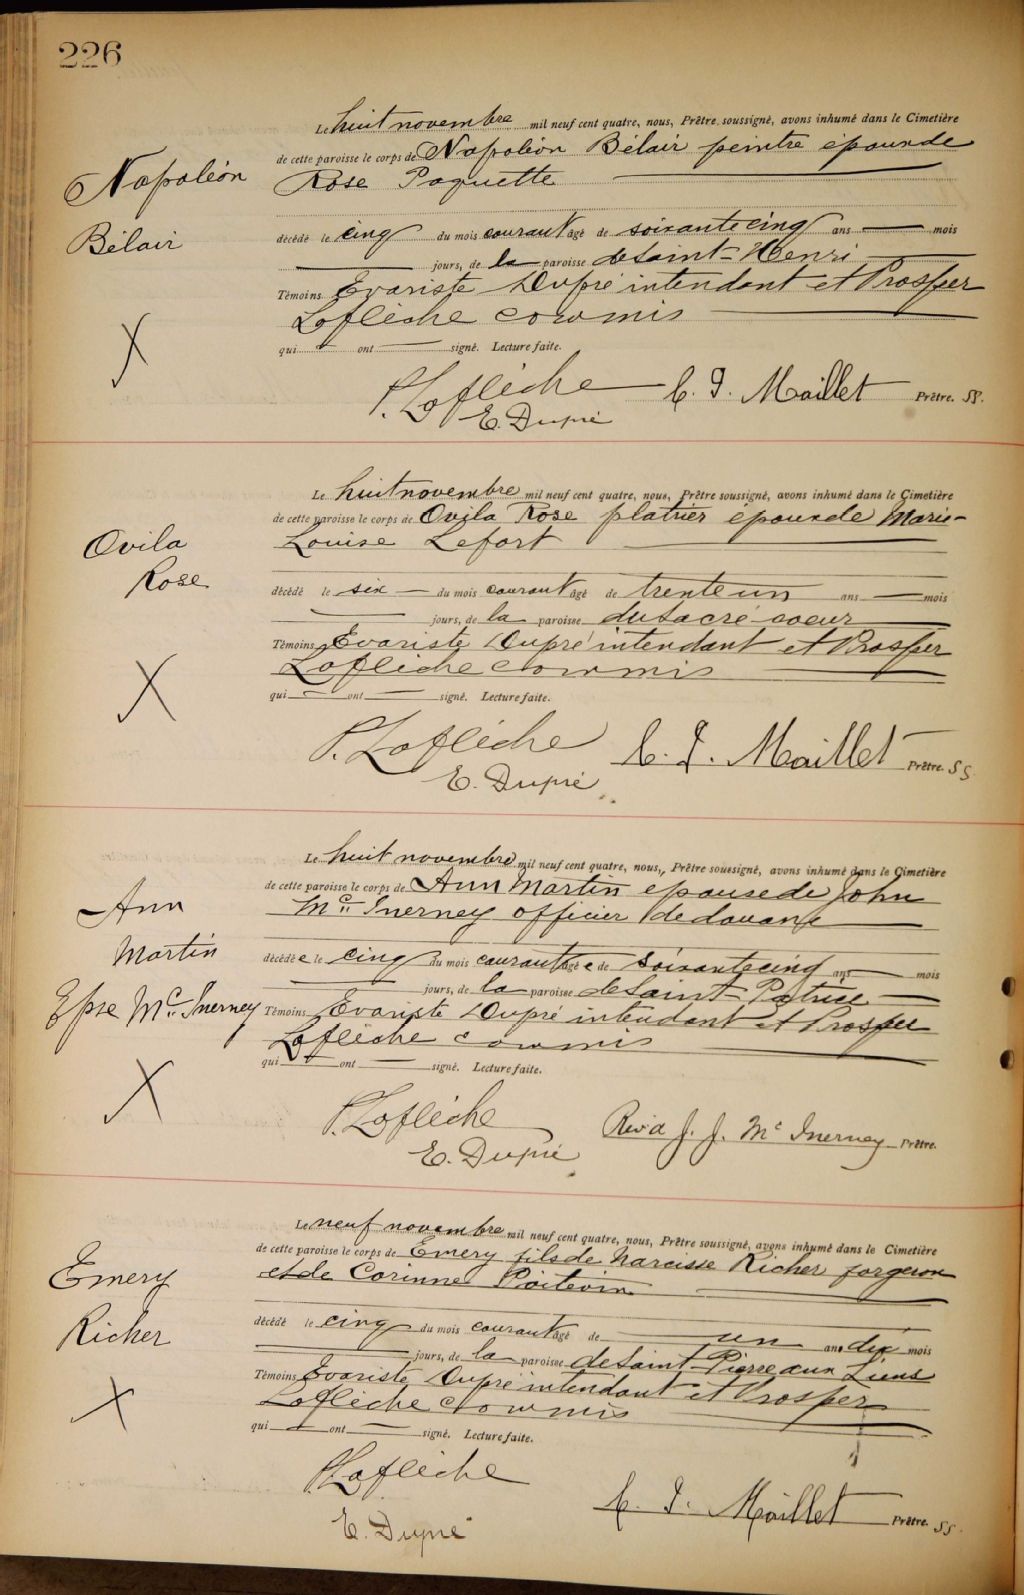 226
Le huit novembre mil neuf cent quatre, nous, Prêtre soussigné, avons inhumé dans le Cimetière
de cette paroisse le corps de Napoléon Bélair peintre époux de
Rose Paquette
Napoléon
Bélair
décédé le cinq du mois courant âgé de soixante cinq ans — mois
— jours, de la paroisse de Saint-Henri
Témoins Evariste Dupré intendant et Prosper
Laflèche commis
X
qui — ont — signé. Lecture faite.
P. Laflèche C. J. Maillet Prêtre. SS.
E. Dupré
Le huit novembre mil neuf cent quatre, nous, Prêtre soussigné, avons inhumé dans le Cimetière
de cette paroisse le corps de Ovila Rose platrier époux de Marie-
Louise Lefort
Ovila
Rose
décédé le six — du mois courant âgé de trente un ans — mois
— jours, de la paroisse du Sacré-coeur
Témoins Evariste Dupré intendant et Prosper
Laflèche commis
X
qui — ont — signé. Lecture faite.
P. Laflèche C. J. Maillet Prêtre. SS
E. Dupré
Le huit novembre mil neuf cent quatre, nous, Prêtre soussigné, avons inhumé dans le Cimetière
de cette paroisse le corps de Ann Martin epouse de John
Mc Inerney officier de douane
Ann
Martin
Epse Mc Inerney
décédée le cinq du mois courant âgée de soixante cinq ans — mois
— jours, de la paroisse de Saint-Patrice
Témoins Evariste Dupré intendant et Prosper
Laflèche commis
X
qui — ont — signé. Lecture faite.
P. Laflèche
E. Dupré
Rev'd J. J. Mc Inerney Prêtre.
Le neuf novembre mil neuf cent quatre, nous, Prêtre soussigné, avons inhumé dans le Cimetière
de cette paroisse le corps de Emery fils de Narcisse Richer forgeron
et de Corinne Poitevin
Emery
Richer
décédé le cinq du mois courant âgé de un an dix mois
— jours, de la paroisse de Saint-Pierre aux Liens
Témoins Evariste Dupré intendant et Prosper
Laflèche commis
X
qui — ont — signé. Lecture faite.
P. Laflèche
C. J. Maillet Prêtre. SS.
E. Dupré